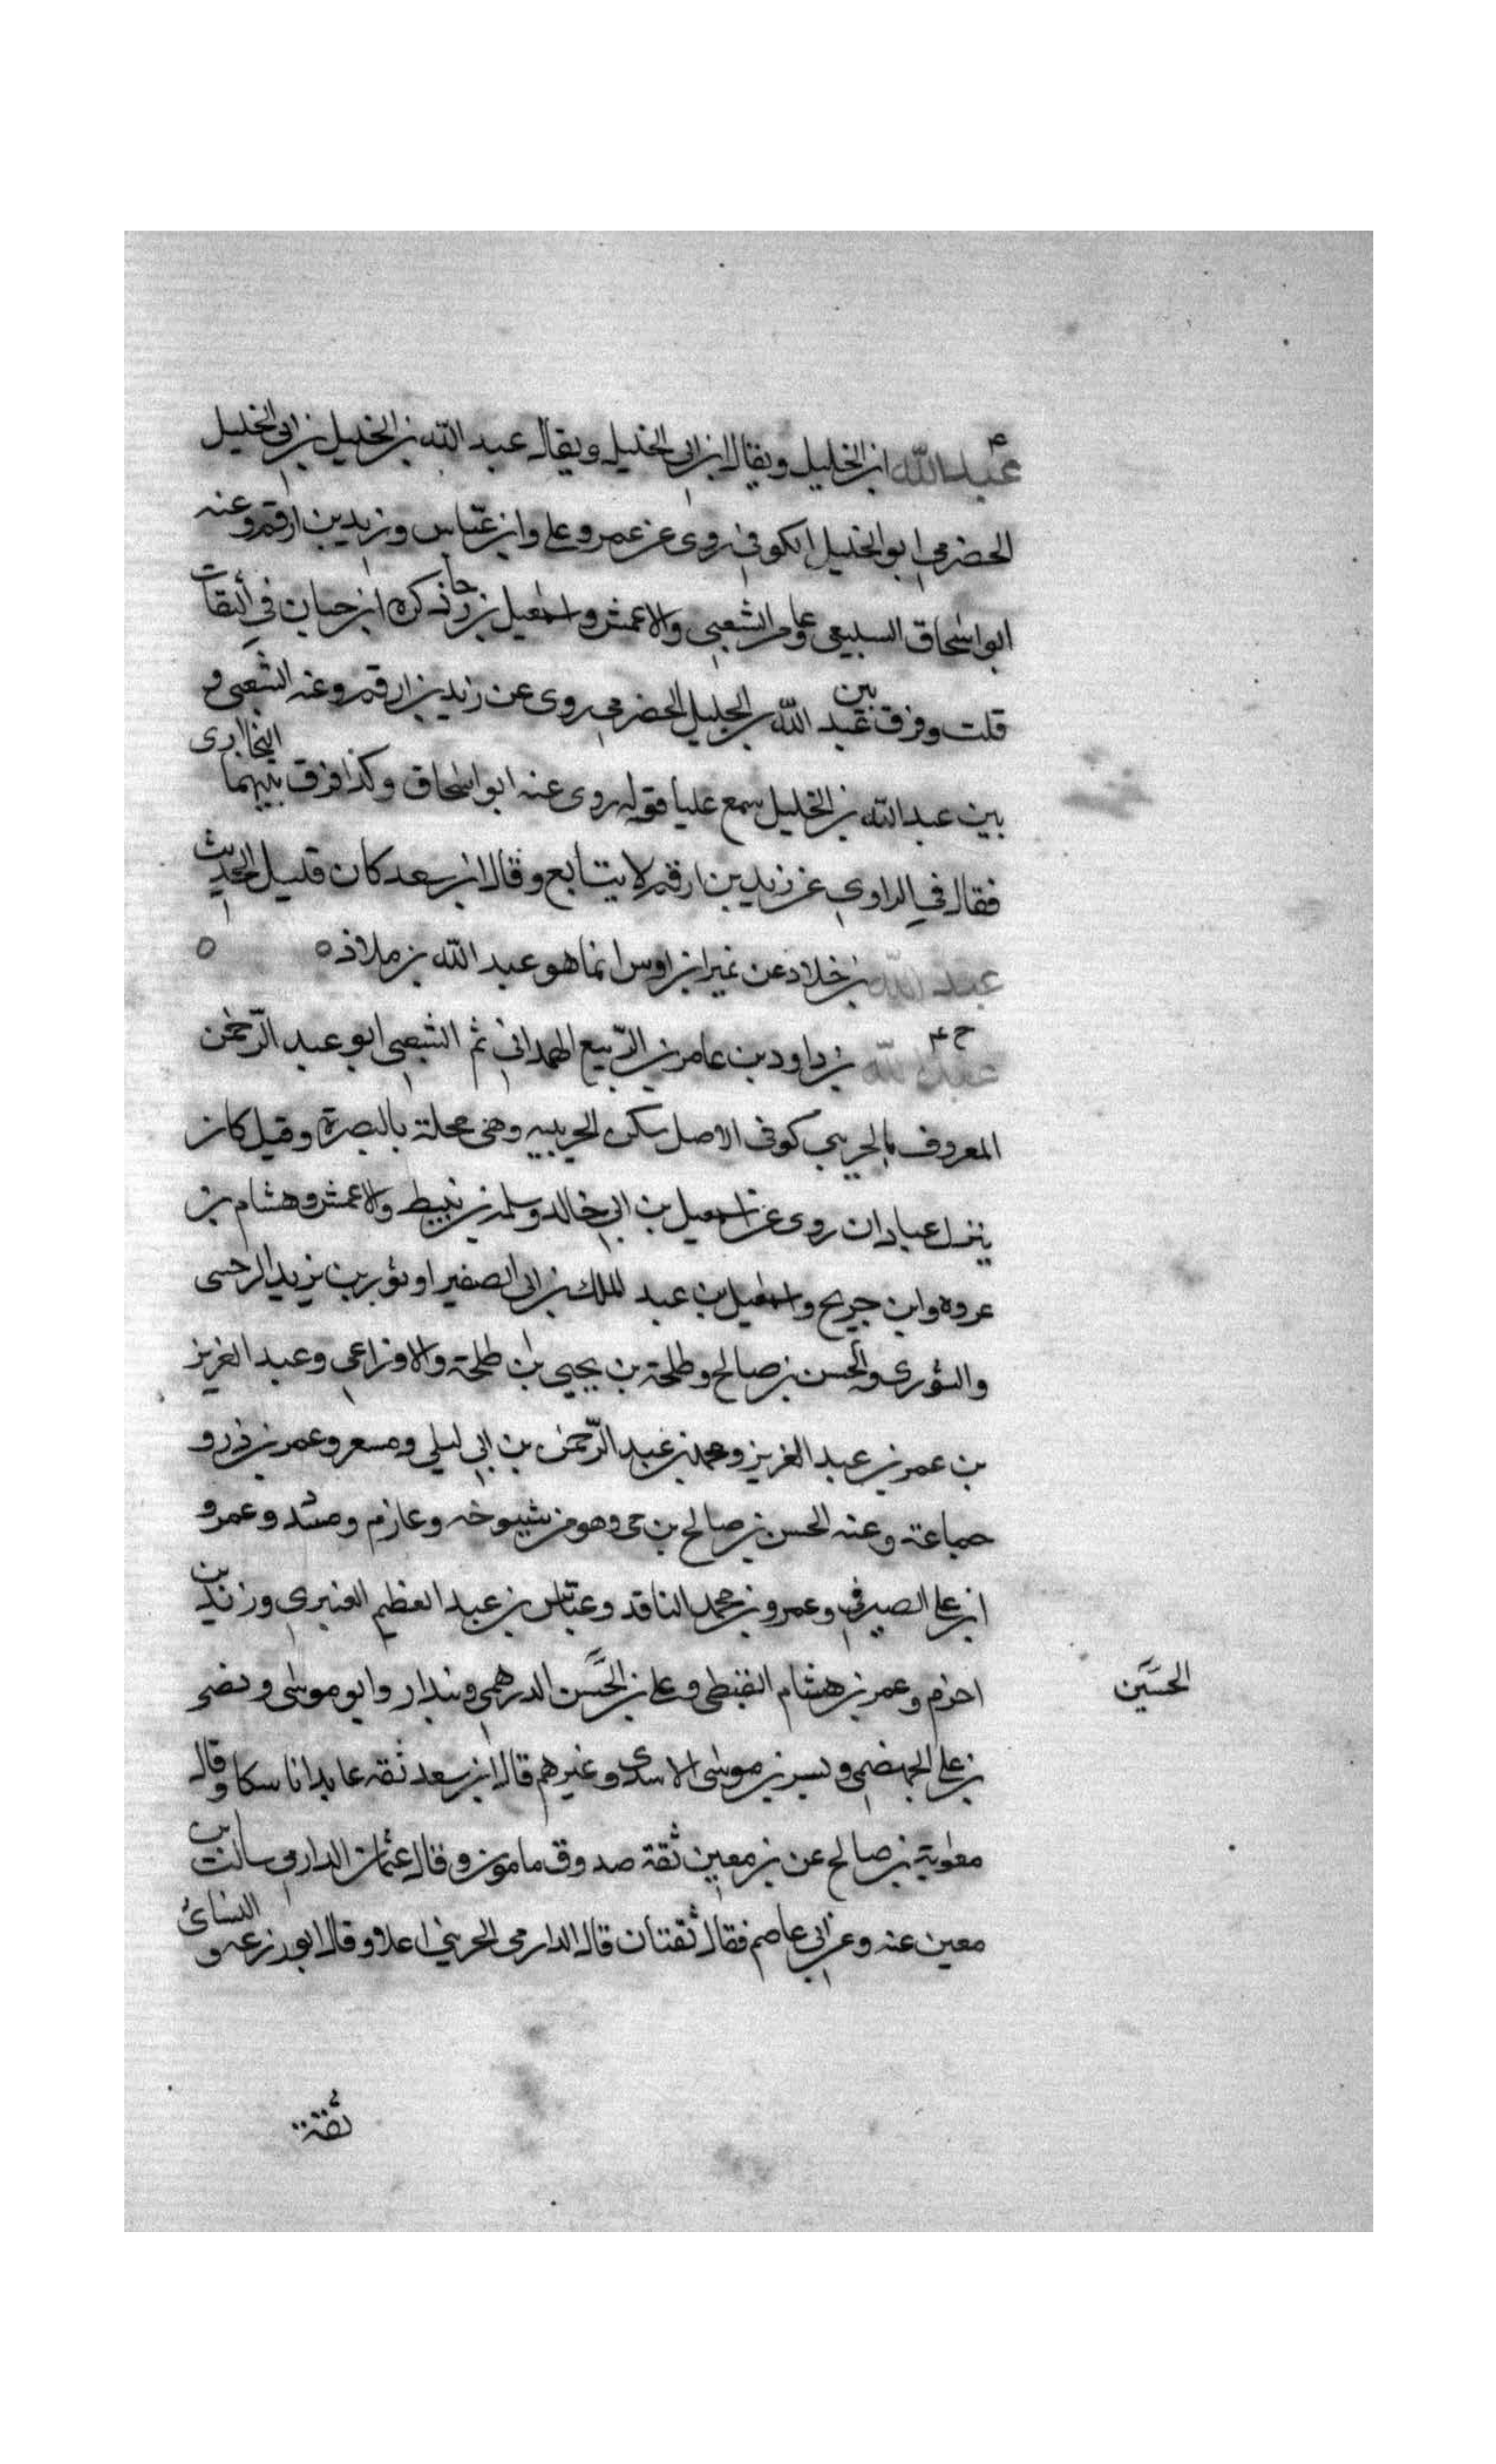 ٤
عبد الله ابن الخليل ويقال ابن ابي الخليل ويقال عبد الله بن الخليل بن ابي الخليل
الحضرمي ابو الخليل الكوفي روى عن عمر وعلي وابن عباس وزيد بن ارقم وعنه
ابو اسحاق السبيعي وعامر الشعبي والاعمش واسمعيل بن رجا ذكره ابن حبان في الثقات
قلت وفرق بين عبد الله بن الخليل الحضرمي روى عن زيد بن ارقم وعنه الشعبي و
بين عبد الله بن الخليل سمع عليا قوله روى عنه ابو اسحاق وكذا فرق بينهما البخاري
فقال في الراوي عن زيد بن ارقم لا يتابع وقال ابن سعد كان قليل الحديث
عبد الله بن خلاد عن نمير ابن اوس انما هو عبد الله بن ملاذ ه ه
خ ٤
عبد الله بن داود بن عامر بن الربيع الهمداني ثم الشعبي ابو عبد الرحمن
المعروف بالخريبي كوفي الاصل سكن الخريبيه وهي محلة بالبصرة وقيل كان
ينزل عبادان روى عن اسمعيل بن ابي خالد وسلمة بن نبيط والاعمش وهشام بن
عروه وابن جريج واسمعيل بن عبد الملك بن ابي الصفيرا وثور بن يزيد الرحبى
والثوري والحسن بن صالح وطلحة بن يحيى بن طلحة والاوزاعي وعبد العزيز
بن عمر بن عبد العزيز ومحمد بن عبد الرحمن بن ابي ليلى ومسعر وعمر بن ذر و
جماعة وعنه الحسن بن صالح بن حي وهو من شيوخه وعارم ومسدد وعمرو
ابن علي الصيرفي وعمرو بن محمد الناقد وعباس بن عبد العظيم العنبري وزيد بن
اخزم وعمر بن هشام القبطي وعلي بن الحسن الدرهمي وبندار وابو موسى ونصر
الحسين
بن علي الجهضمي وبسر بن موسى الاسدي وغيرهم قال ابن سعد ثقه عابدا ناسكا وقال
معوية بن صالح عن بن معين ثقة صدوق مامون وقال عثمان الدارمي سالت ابن
معين عنه وعن ابي عاصم فقال ثقتان قال الدارمي الخريبي اعلا وقال ابو زرعه و النسائي
ثقة